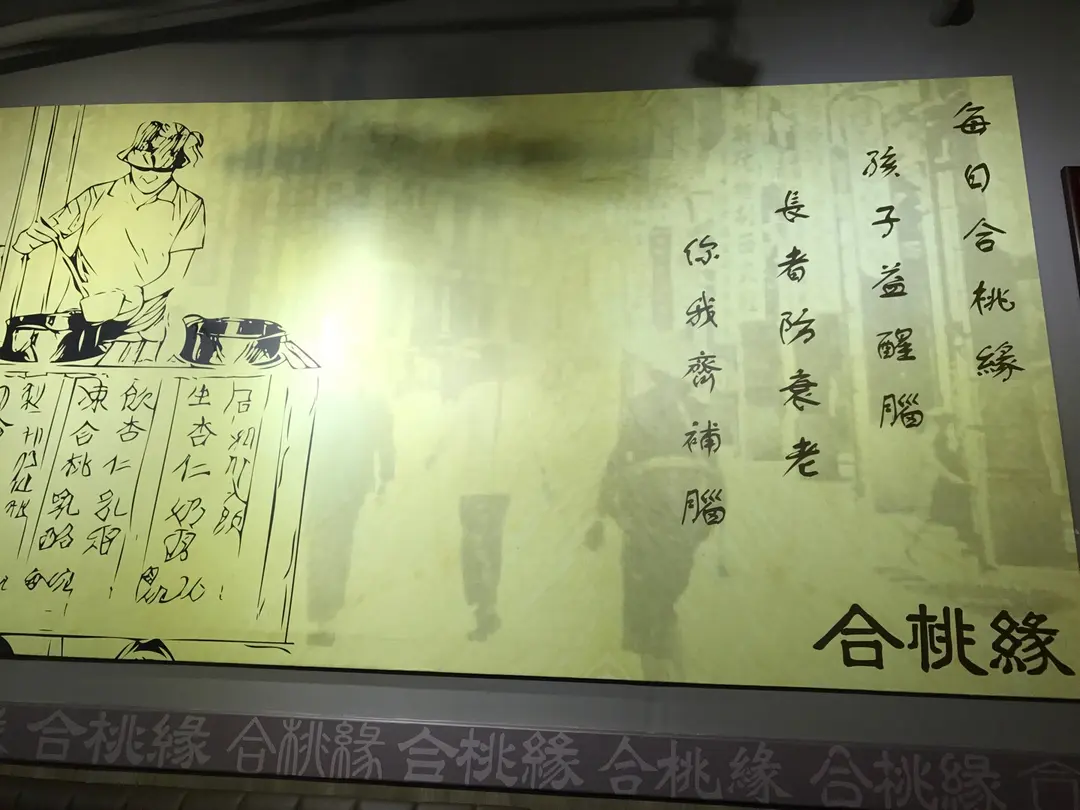 每日合桃緣
孩子益醒腦
長者防衰老
你我齊補腦
合桃緣
坐杏仁奶露
飲杏仁乳
凍合桃乳酪
合桃緣
合桃緣
合桃緣
合桃緣
合桃緣
合